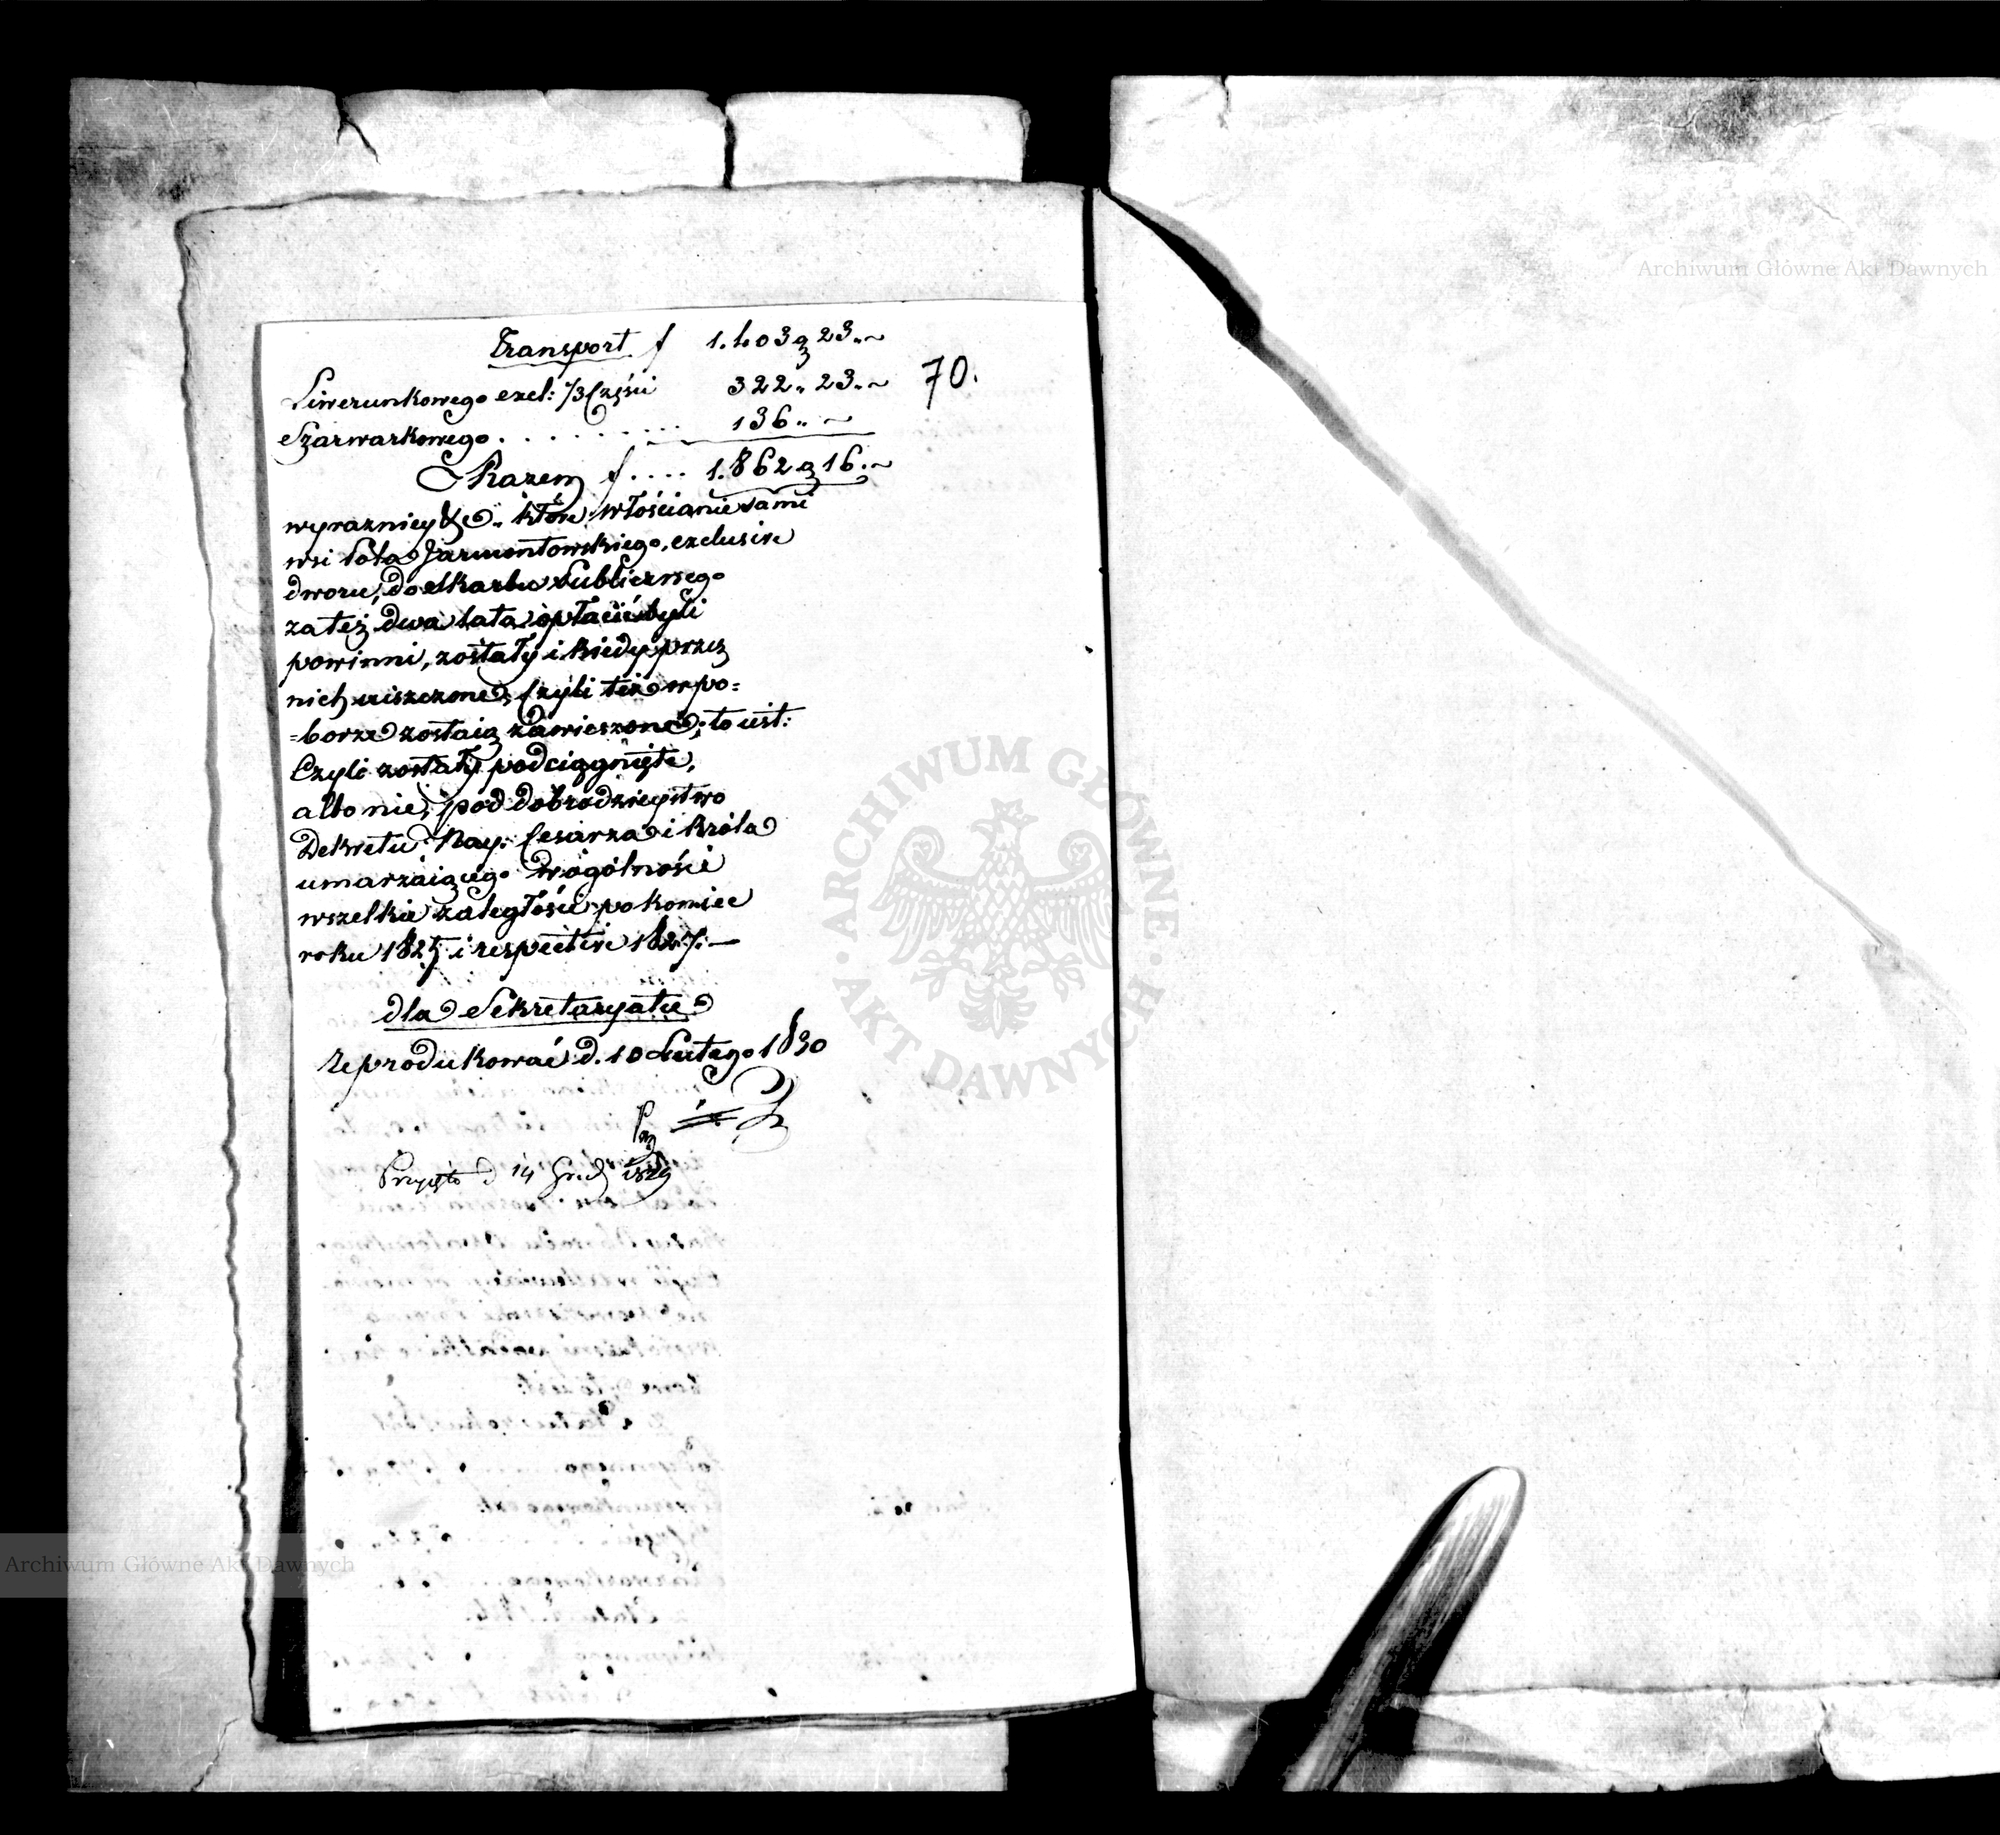 Transport f 1.403 g 23.. ~
70.
Liwerunkowego excl: 1/3 Części 322.. 23.. ~
Szarwarkowego . . . . . . . . . 136.. ~
Razem f.... 1.862 g 16.. ~
wyrazniey że.. które włościanie sami
wsi Pola Jarmontowskiego, exclusive
dworu, do Skarbu Publicznego
za też dwa lata opłacić byli
powinni, zostały i kiedy przez
nich uiszczone, czyli też w po=
=borze zostaią zawieszone; to iest:
Czyli zostały podciągnięte,
albo nie, pod dobrodzieystwo
Dekretu Nay: Cesarza i Króla
umarzaiącego w ogólności
wszelkie zaległości po koniec
roku 1825 i respective 1827. —
dla Sekretaryatu
reprodukować d. 10 Lutego 1830
Przyięto d 14 Grud 1829
ARCHIWUM GŁÓWNE
AKT DAWNYCH
Archiwum Główne Akt Dawnych
Archiwum Główne Akt Dawnych